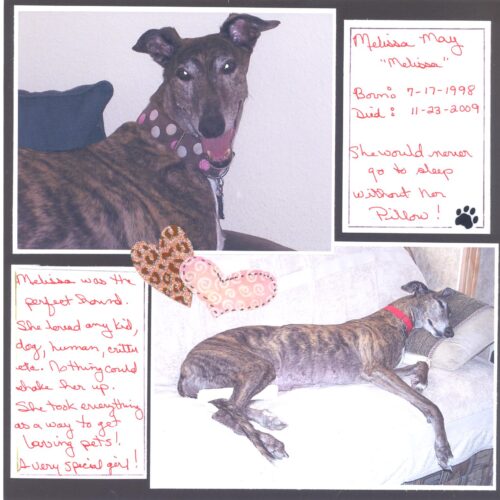 Melissa May
"Melissa"
Born: 7-17-1998
Died: 11-23-2009
She would never
go to sleep
without her
Pillow!
Melissa was the
perfect hound.
She loved any kid,
dog, human, critter
etc. Nothing could
shake her up.
She took everything
as a way to get
loving pets!
A very special girl!